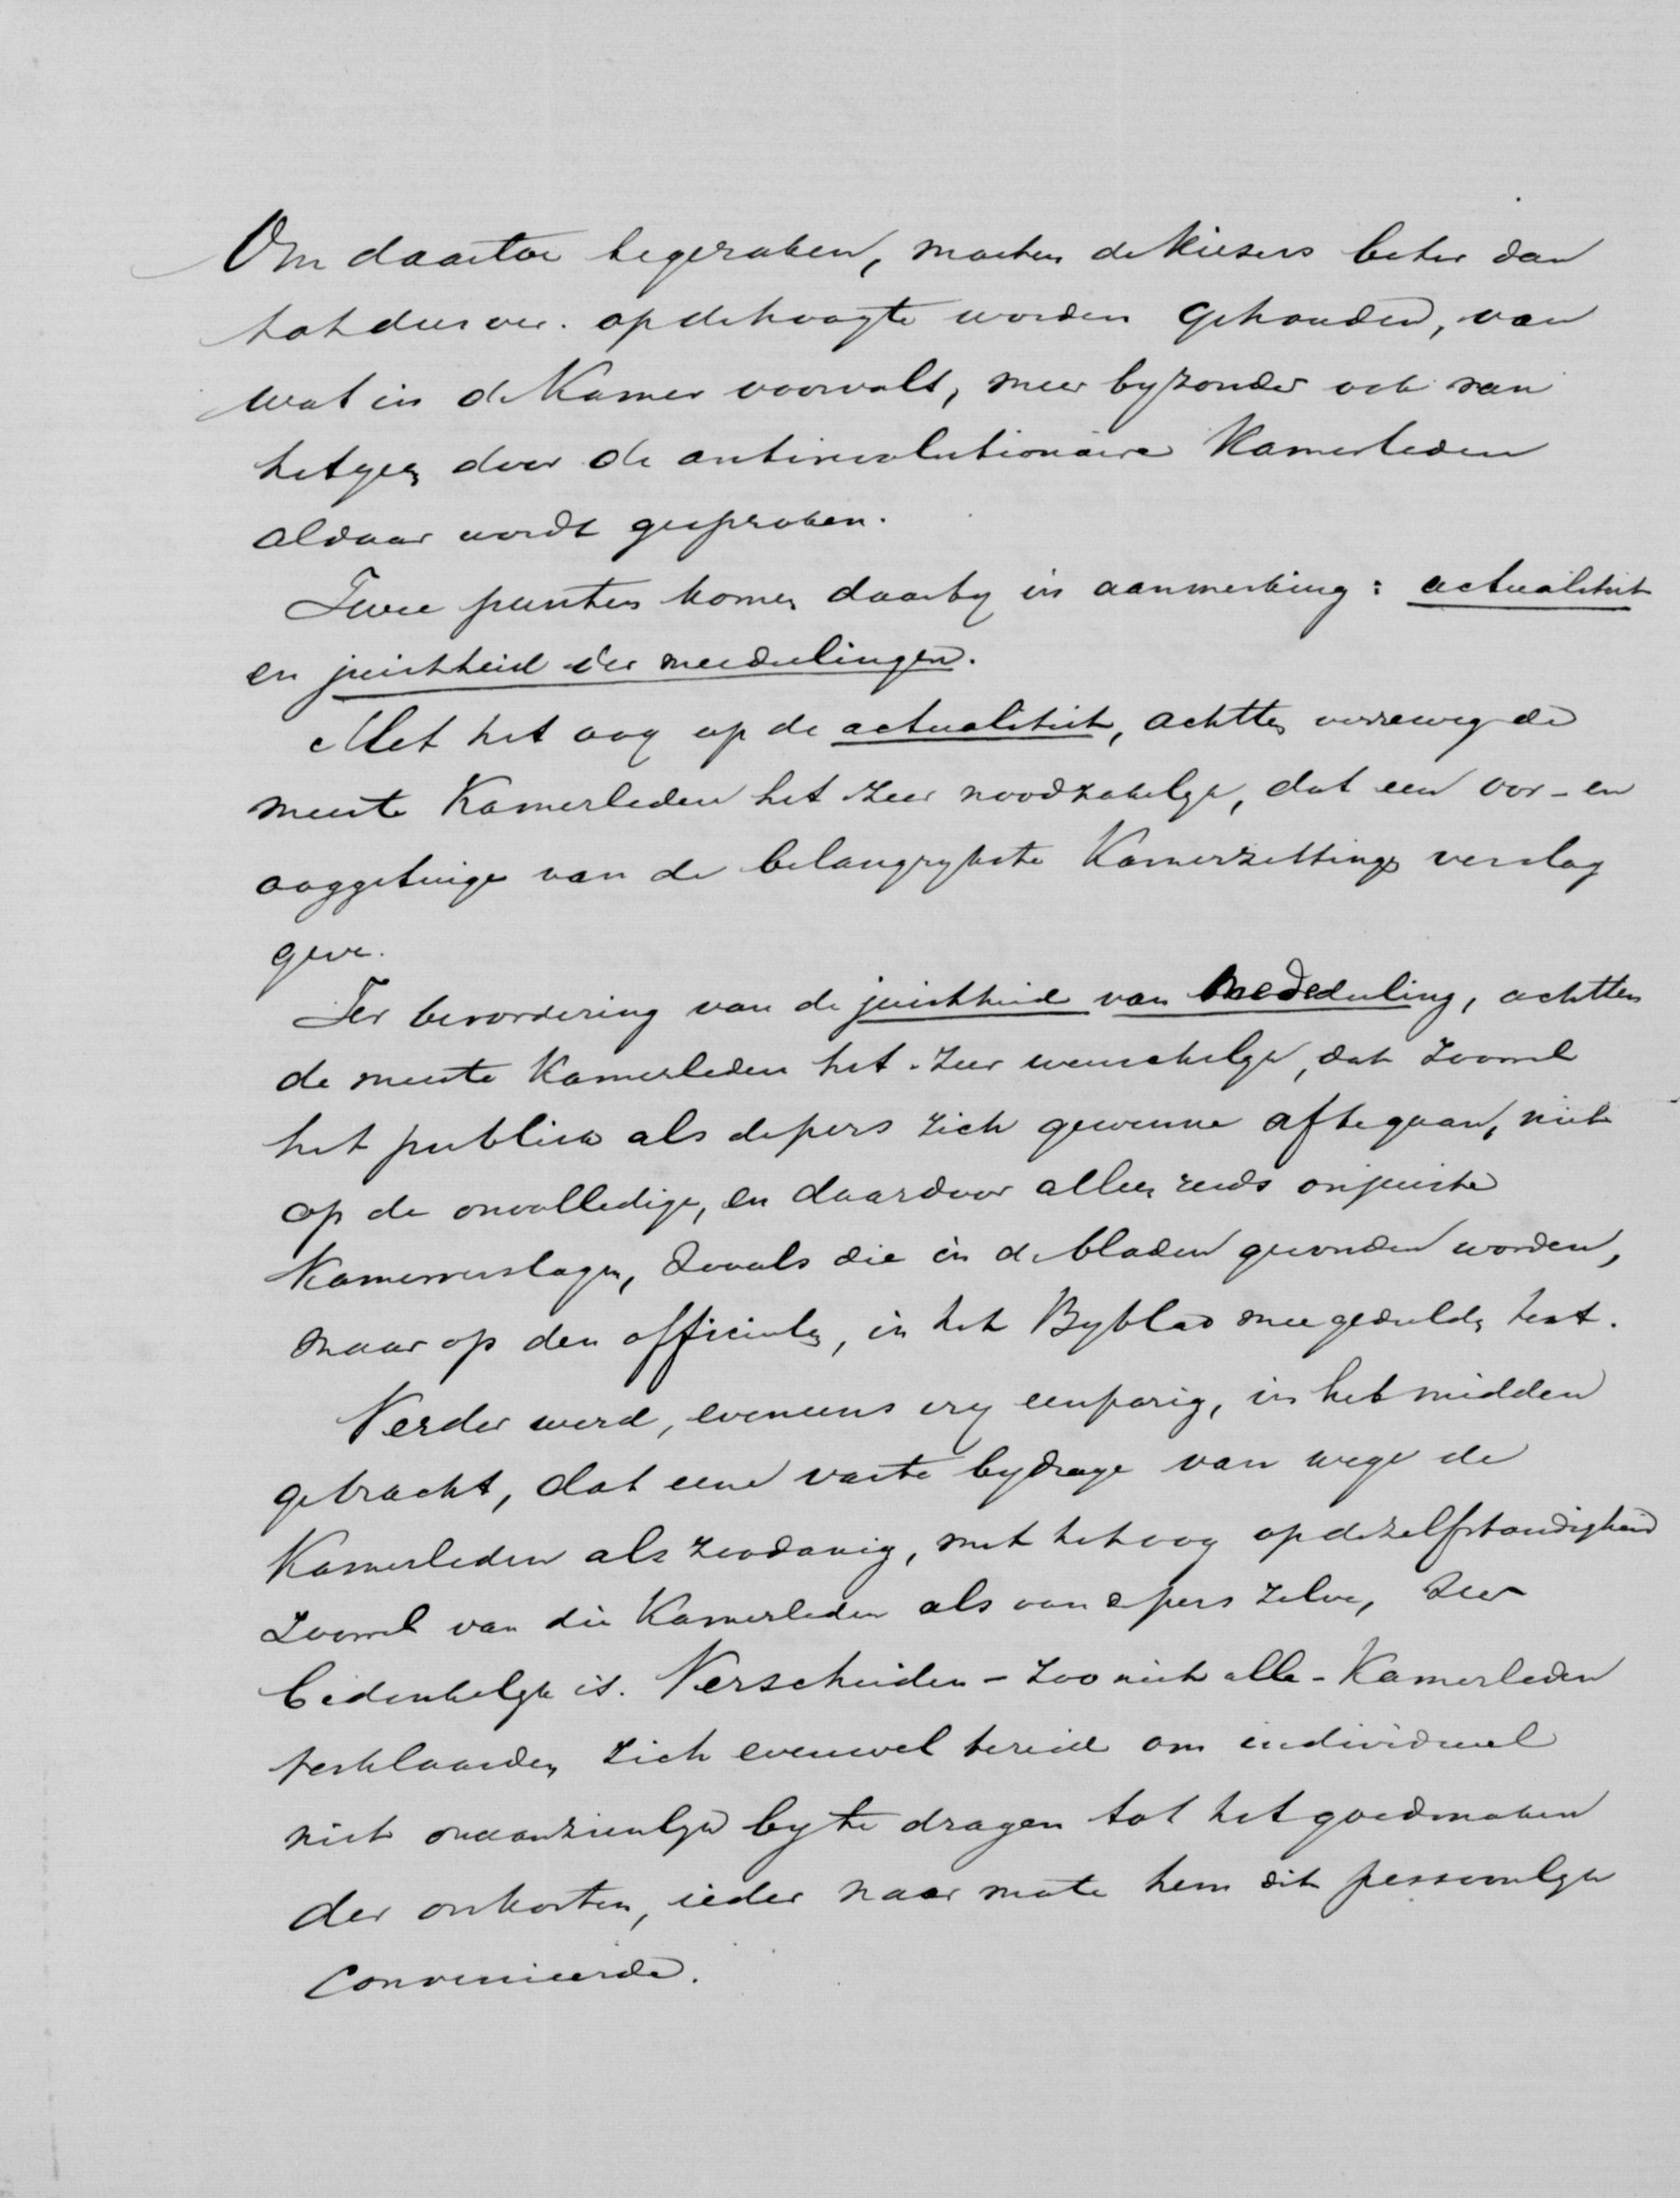 Om daartoe te geraken, moeten de kiezers beter dan
tot dusver op de hoogte worden gehouden, van
wat in de Kamer voorvalt, meer byzonder ook van
hetgeen door de antirevolutionaire Kamerleden
aldaar wordt gesproken.
Twee punten komen daarby in aanmerking: actualiteit
en juistheid der meedeelingen.
Met het oog op de actualiteit, achtten verreweg de
meeste Kamerleden het zeer noodzakelyk, dat een oor- en
ooggetuige van de belangrykste Kamerzittingen verslag
geve.
Ter bevordering van de juistheid van mededeeling, achtten
de meeste Kamerleden het zeer wenschelyk, dat zoowel
het publiek als de pers zich gewenne af te gaan, niet
op de onvolledige, en daardoor alleen reeds onjuiste
Kamerverslagen, zooals die in de bladen gevonden worden,
maar op den officieelen, in het Byblad meegedeelden text.
Verder werd, eveneens vry eenparig, in het midden
gebracht, dat eene vaste bydrage van wege de
Kamerleden als zoodanig, met het oog op de zelfstandigheid
zoowel van die Kamerleden als van de pers zelve, zeer
bedenkelyk is. Verscheiden - zoo niet alle - Kamerleden
verklaarden zich evenwel bereid om individueel
niet onaanzienlyk by te dragen tot het goedmaken
der onkosten, ieder naar mate hem dit persoonlyk
convenieerde.